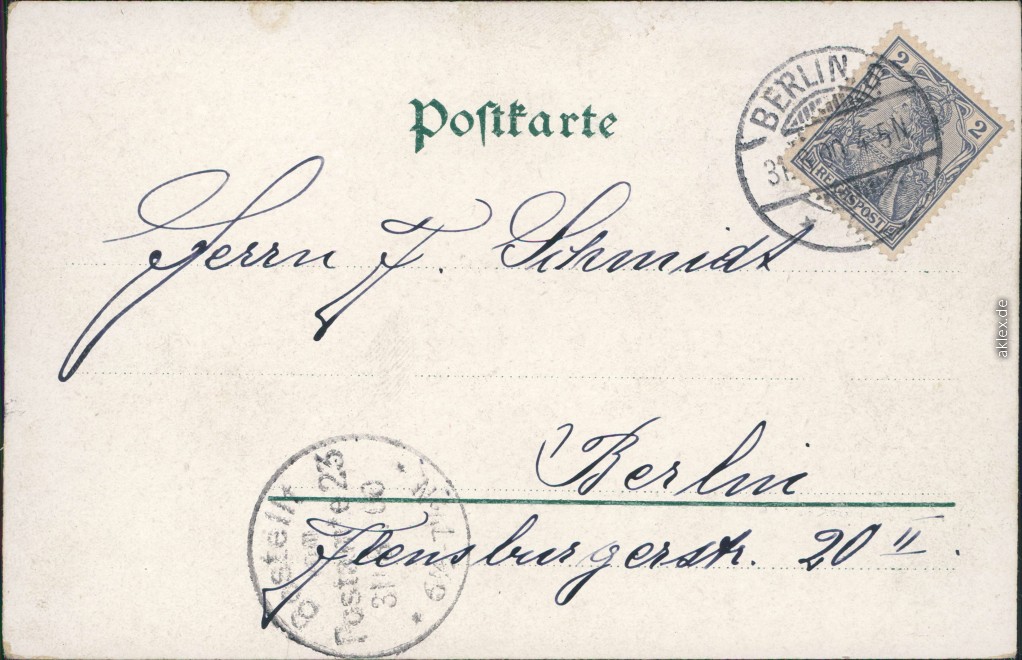 Postkarte
BERLIN
31. 4-5N
2
2
REICHSPOST
Herrn F. Schmidt
Berlin
Flensburgerstr. 20 II.
Bestellt
vom
Postamte 23
31 00
6¾-7¾N
aklex.de